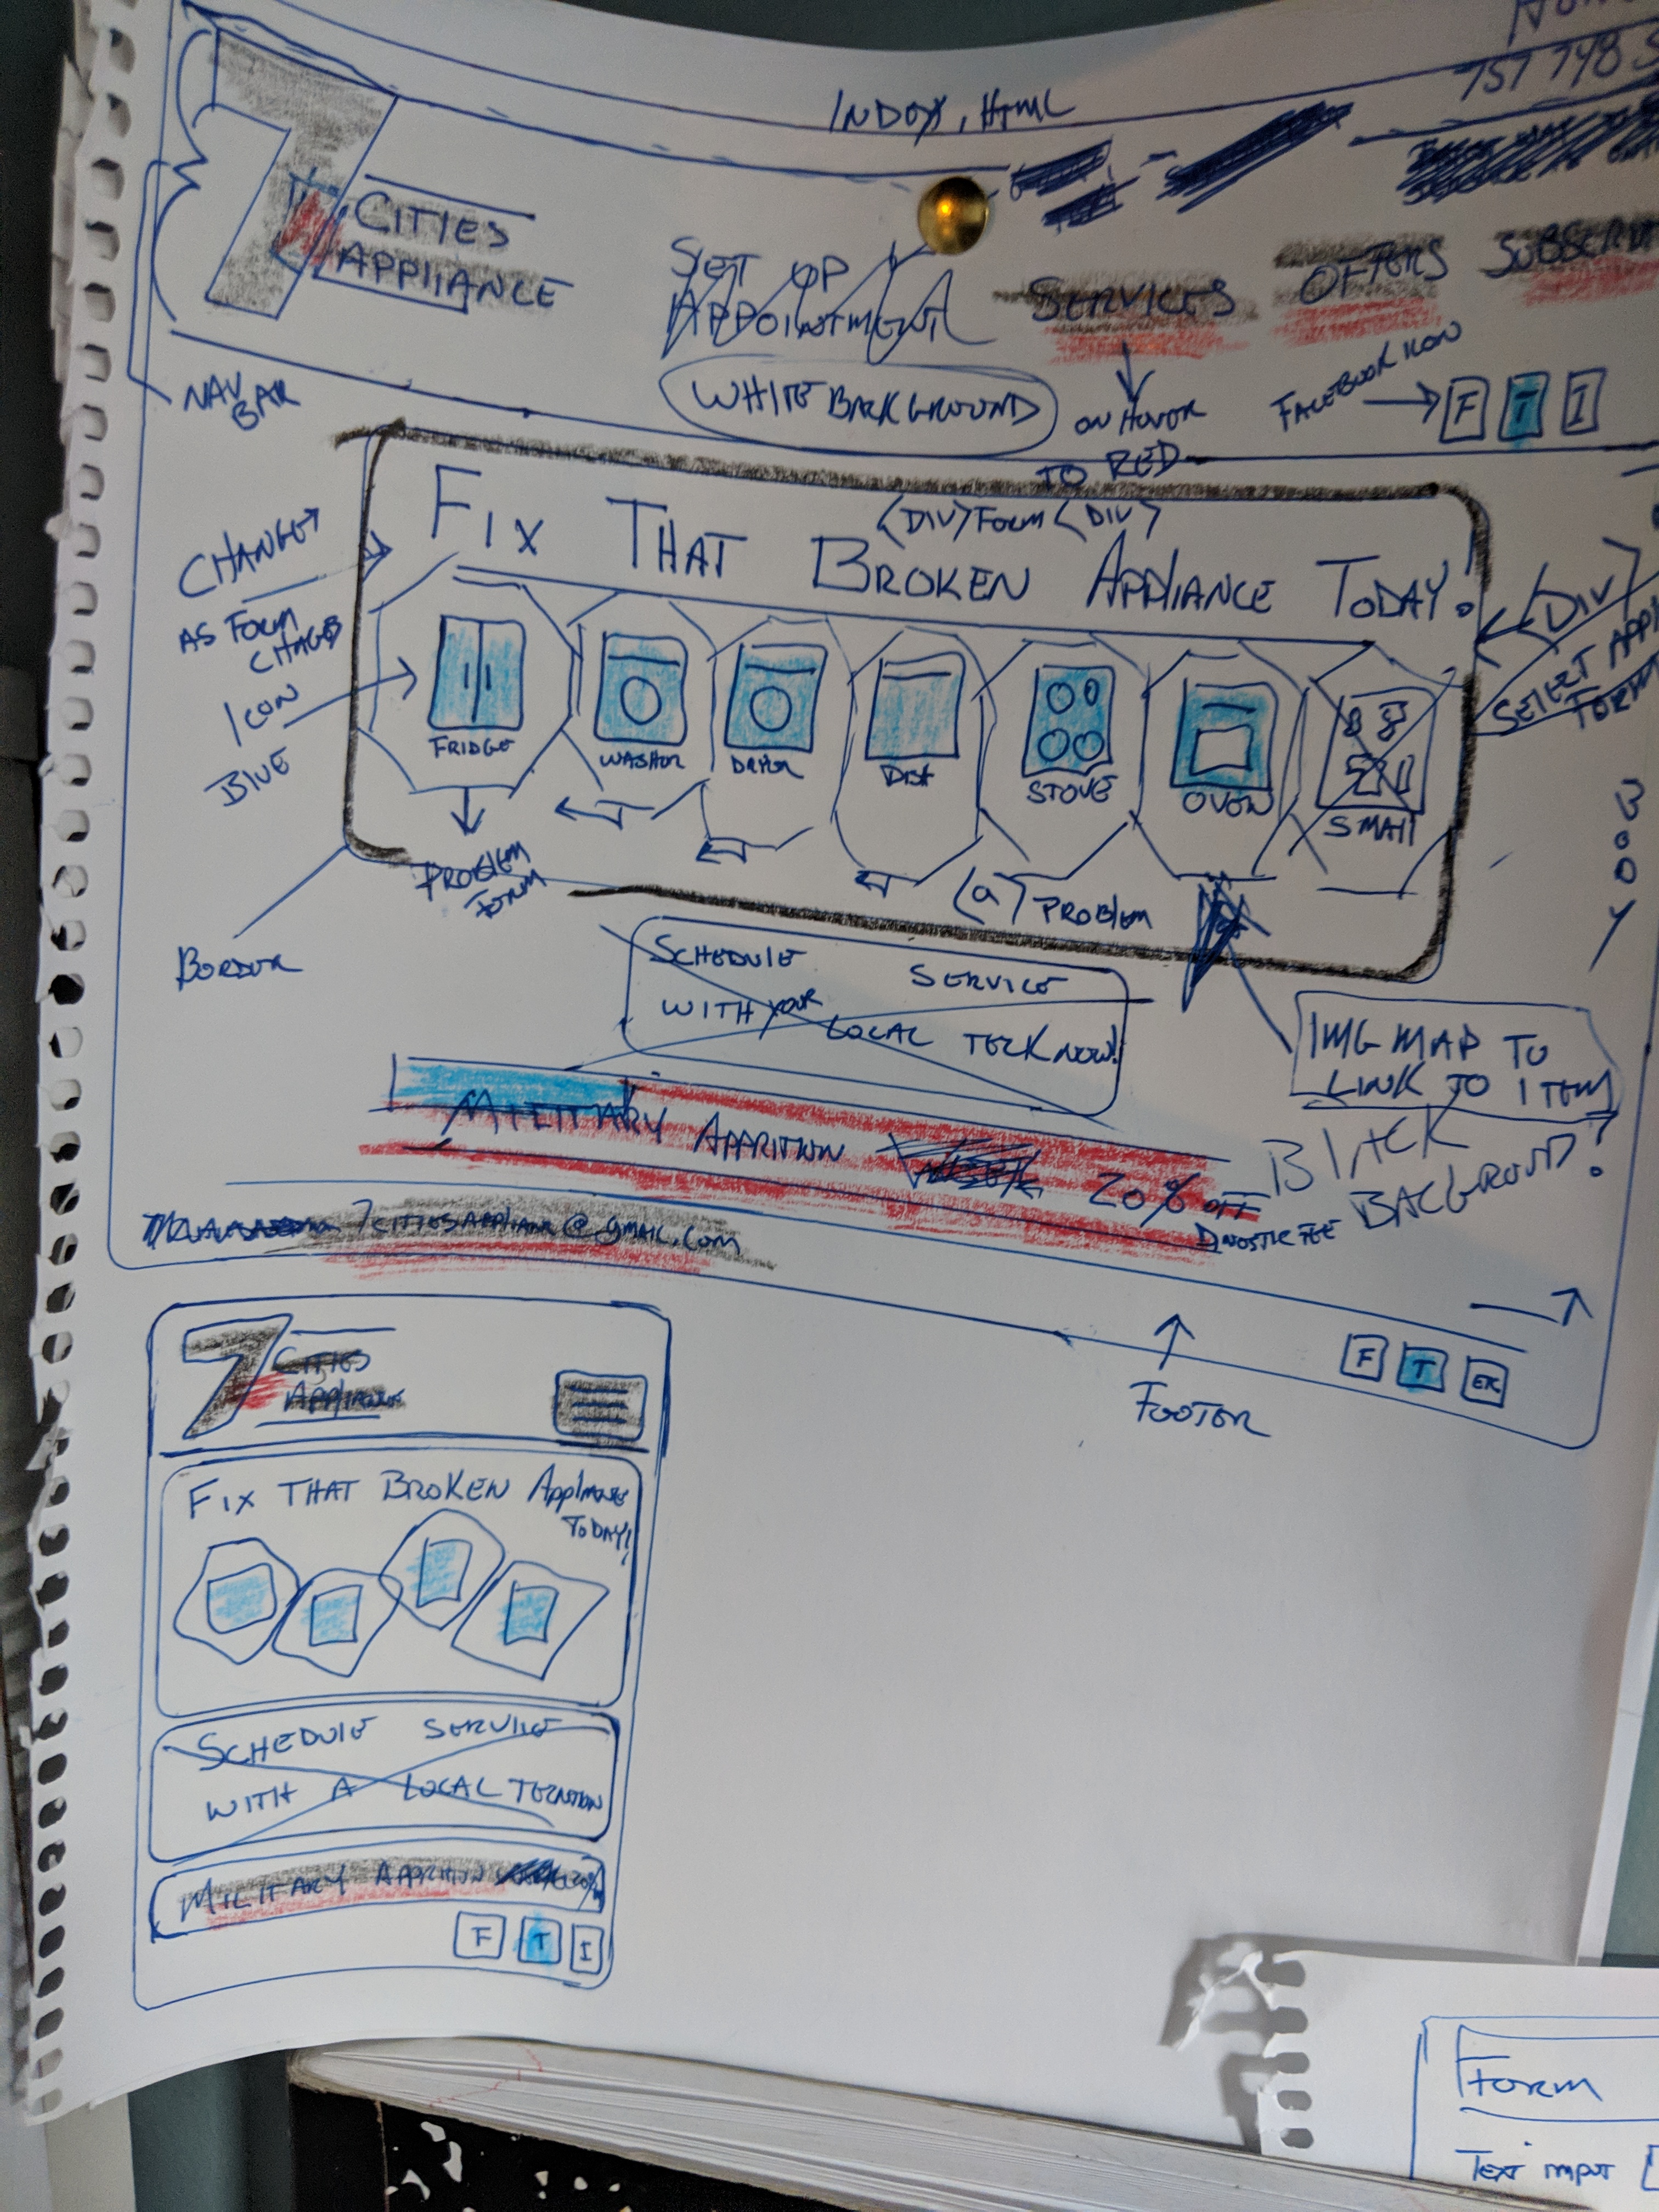 INDEX, HTML
757 748
7 CITIES
APPLIANCE
SET UP
APPOINTMENT
SERVICES
OFFERS
NAV
BAR
WHITE BACKGROUND
ON HOVER
TO RED
FACEBOOK ICON
F T I
CHANGES
AS FORM
CHANGES
ICON
BLUE
BORDER
<DIV> FORM <DIV>
FIX THAT BROKEN APPLIANCE TODAY!
<DIV>
SELECT
FORM
FRIDGE
WASHER
DRYER
DISH
STOVE
OVEN
SMALL
PROBLEM
FORM
(a) PROBLEM
B
O
D
Y
SCHEDULE SERVICE
WITH YOUR LOCAL TECK NOW!
IMG MAP TO
LINK TO ITEM
MILITARY APPRITION
20% OFF
DNOSTIC FEE
BLACK
BACGROUND?
7CITIESAPPLIANC@gmail.com
FOOTER
F T
7 CITIES
APPLIANCE
FIX THAT BROKEN Appliance
TODAY!
SCHEDULE SERVICE
WITH A LOCAL
MILITARY
F T I
FORM
TEXT INPUT